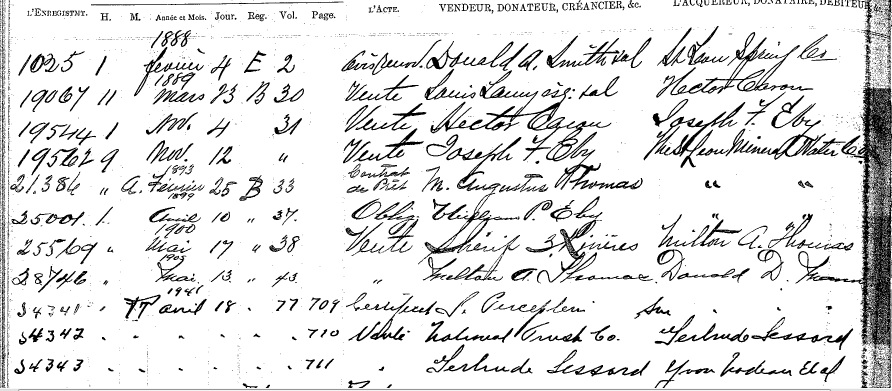 L'ENREGISTMT. H. M. Année et Mois. Jour. Reg. Vol. Page. L'ACTE. VENDEUR, DONATEUR, CRÉANCIER, &c. L'ACQUÉREUR, DONATAIRE, DÉBITEUR
1888
1025 1 février 4 E 2 Donald A. Smith & al St Leon Spring Co
1889
19067 11 Mars 23 B 30 Vente Louis & al Hector Caron
19544 1 Nov. 4 31 Vente Hector Caron Joseph F. Eby
19562 9 Nov. 12 " Vente Joseph F. Eby The St Leon Mineral Water Co.
1893
21386 " A. Février 25 B 33 Contrat de Prêt M. Augustus Thomas " "
1899
25001 1 Avril 10 " 37. Oblig. William P. Eby "
1900
25569 " Mai 17 " 38 Vente Shérif 3 Rivières Milton A. Thomas
1905
28746 " Mai 13 " 43 " Milton A. Thomas Donald D.
1941
54341 avril 18 . 77 709 Certificat
54342 . . . . . 710 Vente National Trust Co. Gertrude Lessard
54343 . . . . . 711 " Gertrude Lessard Yvon Nadeau et al